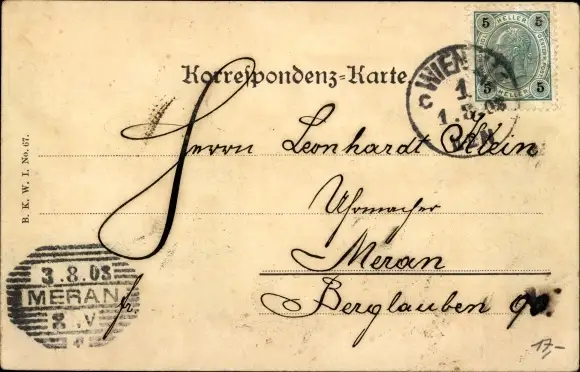 5 HELLER 5
5 HELLER 5
WIEN
1.8.08
Korrespondenz-Karte
Herrn Leonhardt Klein
Uhrmacher
Meran
fr.
Berglauben 90.
B. K. W. I. No. 67.
3.8.08
MERAN
8 .V
17,-